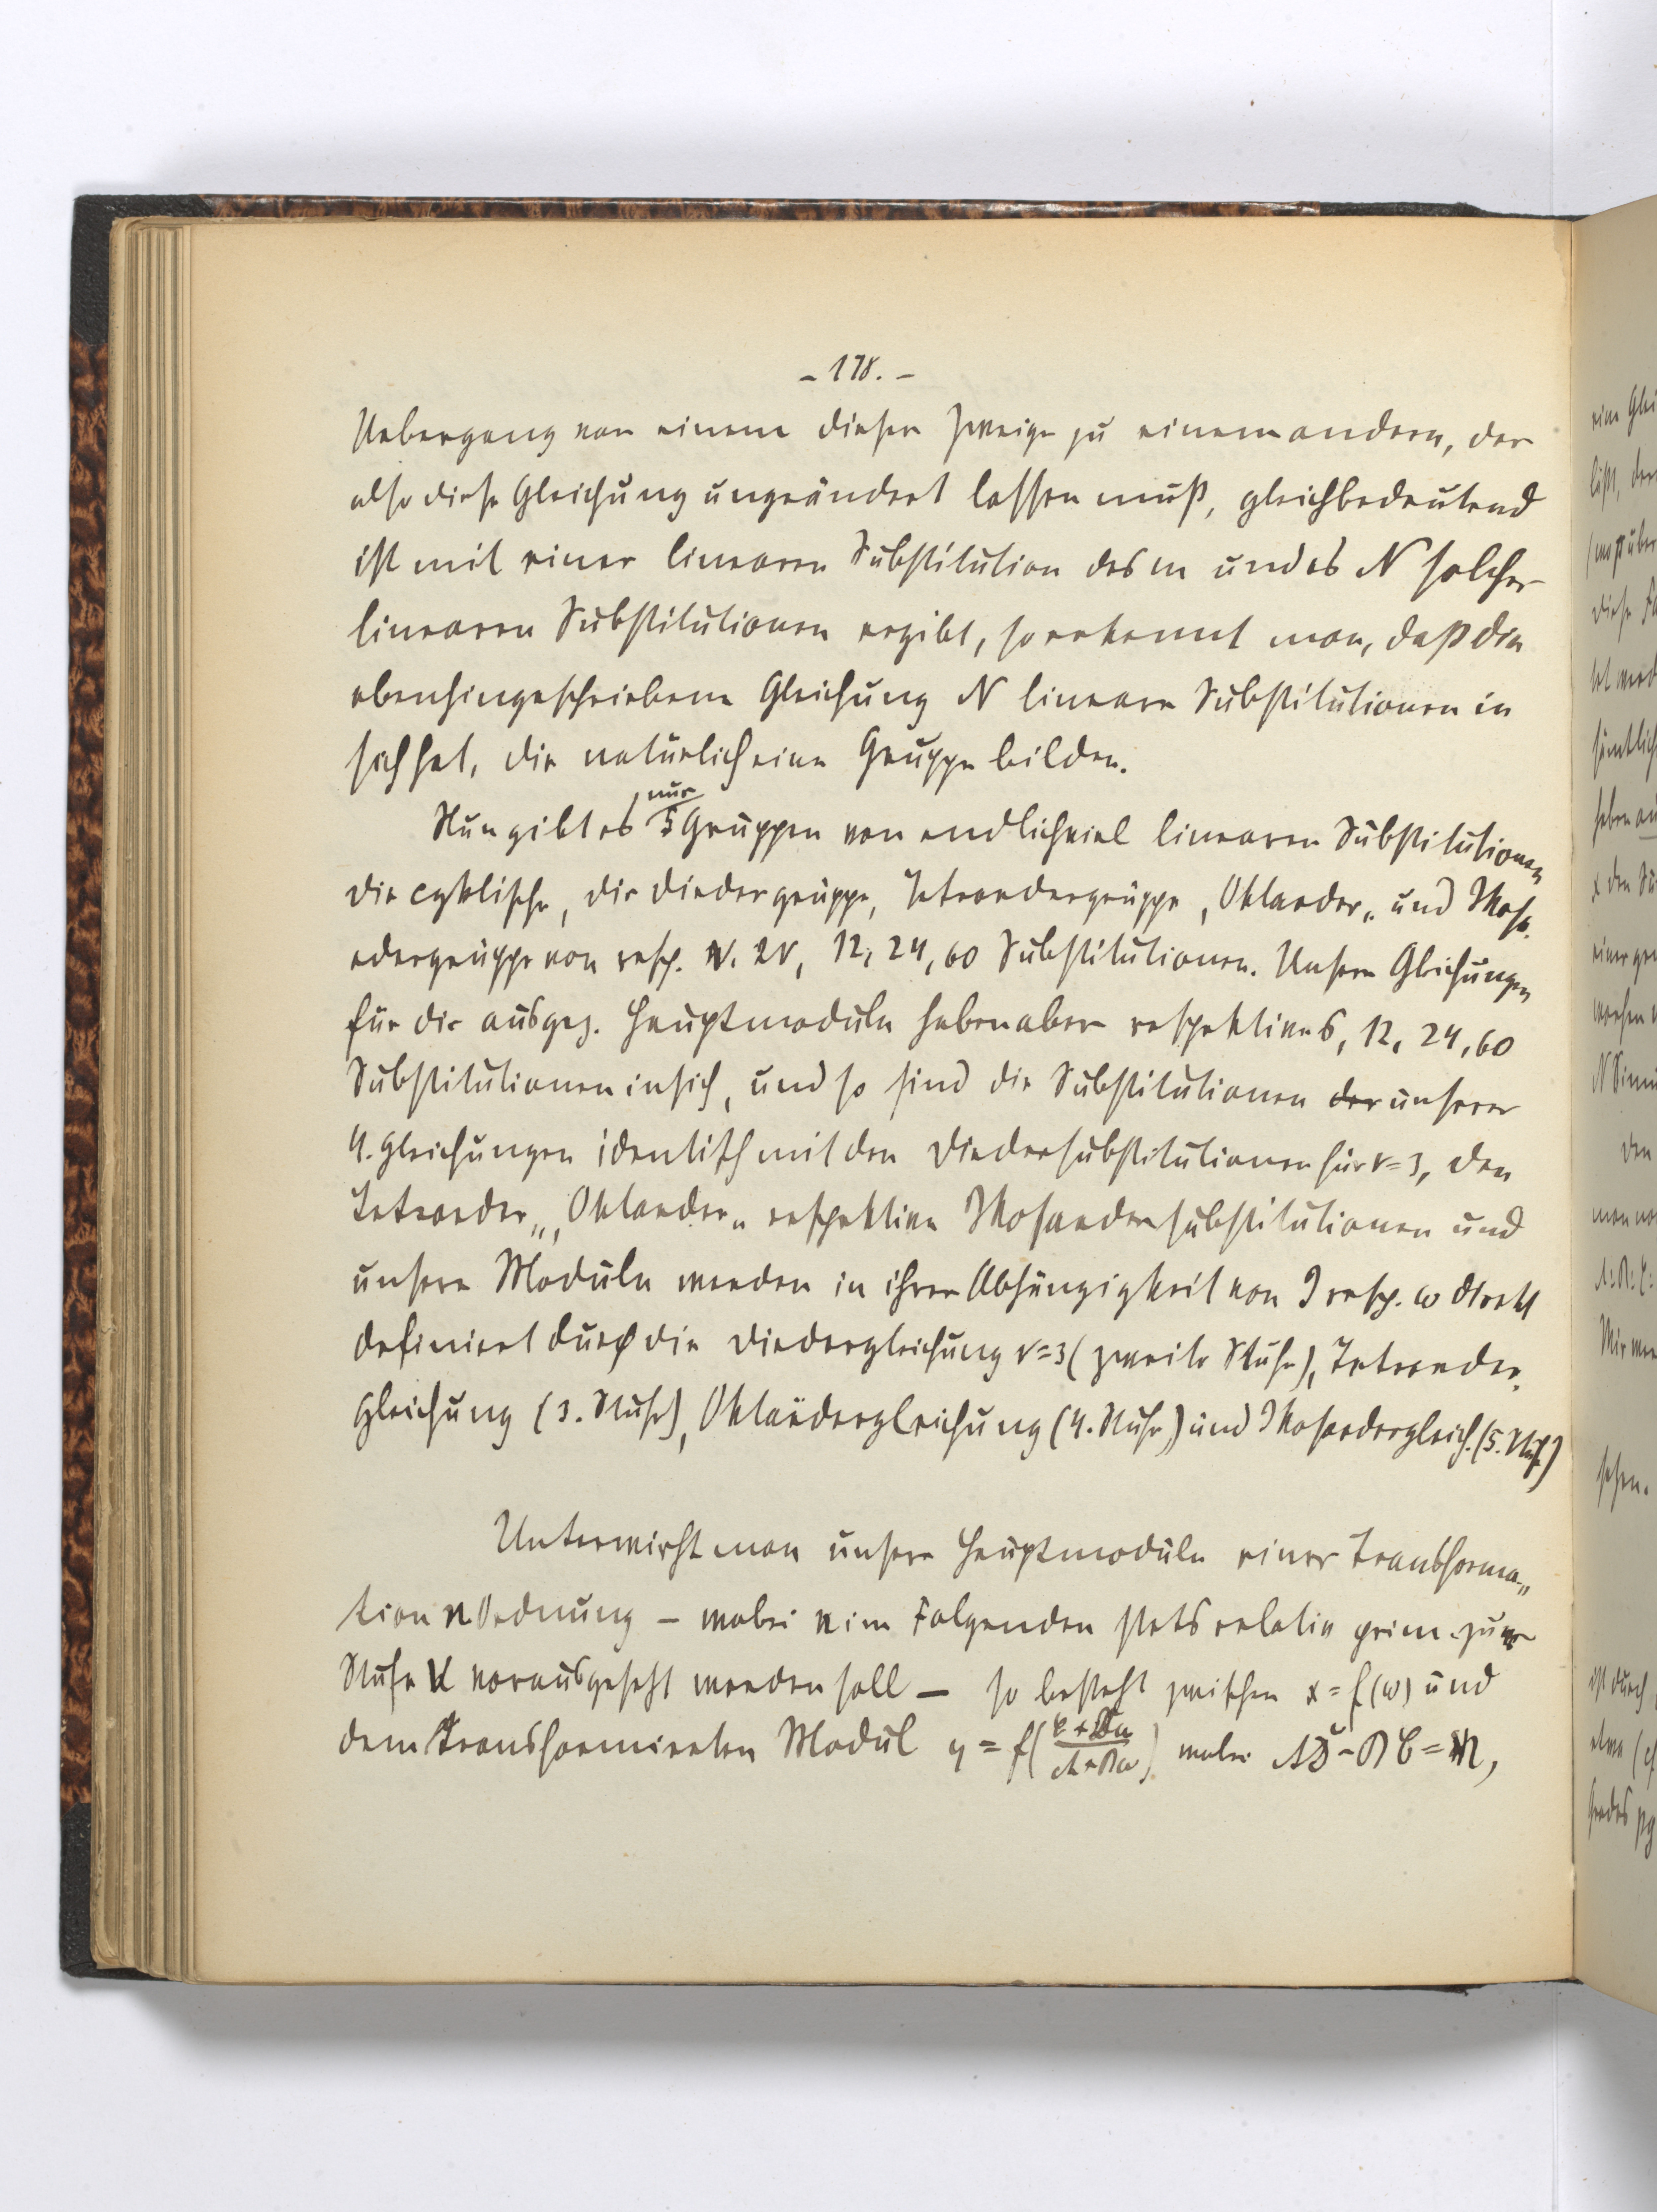 - 178. -
Uebergang von einem dieser Zweige zu einem andern, der
also diese Gleichung ungeändert lassen muß, gleichbedeutend
ist mit einer linearen Substitution des m und es N solcher
linearen Substitutionen ergibt, so erkennt man, daß die
obenhingeschriebene Gleichung N lineare Substitutionen in
sich hat, die natürlich eine Gruppe bilden.
nur
Nun gibt es 5 Gruppen von endlichviel linearen Substitutionen
die cyklische, die Diedergruppe, Tetraedergruppe, Oktaeder„ und Ikosa-
edergruppe von resp. ν. 2ν, 12, 24, 60 Substitutionen. Unsere Gleichungen
für die ausgez. Hauptmoduln haben aber respektive 6, 12, 24, 60
Substitutionen in sich, und so sind die Substitutionen der unserer
4. Gleichungen identisch mit den Diedersubstitutionen für ν=3, den
Tetraeder„, Oktaeder„ respektive Ikosaedersubstitutionen und
unsere Moduln werden in ihrer Abhängigkeit von J resp. ω direkt
definiert durch die Diedergleichung ν=3 (zweite Stufe), Tetraeder-
gleichung (3. Stufe), Oktaedergleichung (4. Stufe) und Ikosaedergleich. (5. Stufe)
Unterwirft man unsere Hauptmoduln einer Transforma„
tion n. Ordnung – wobei n im Folgenden stets relativ prim zur
Stufe vorausgesetzt werden soll – so besteht zwischen x = f(ω) und
dem transformierten Modul y = f((C+Dω)/(A+Bω)) wobei AD-BC=n,